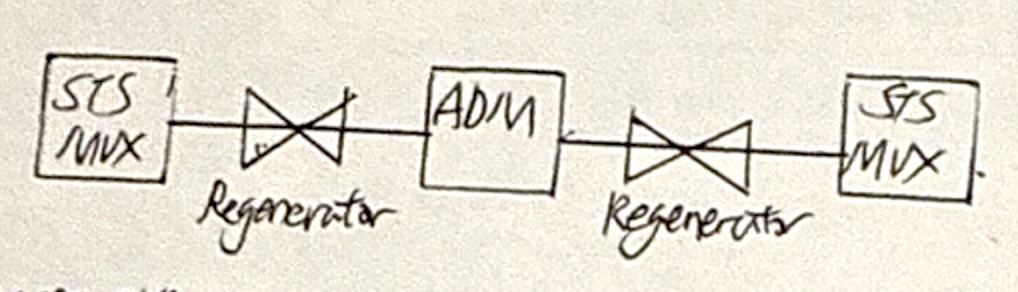 STS
MUX
Regenerator
ADM
Regenerator
STS
MUX